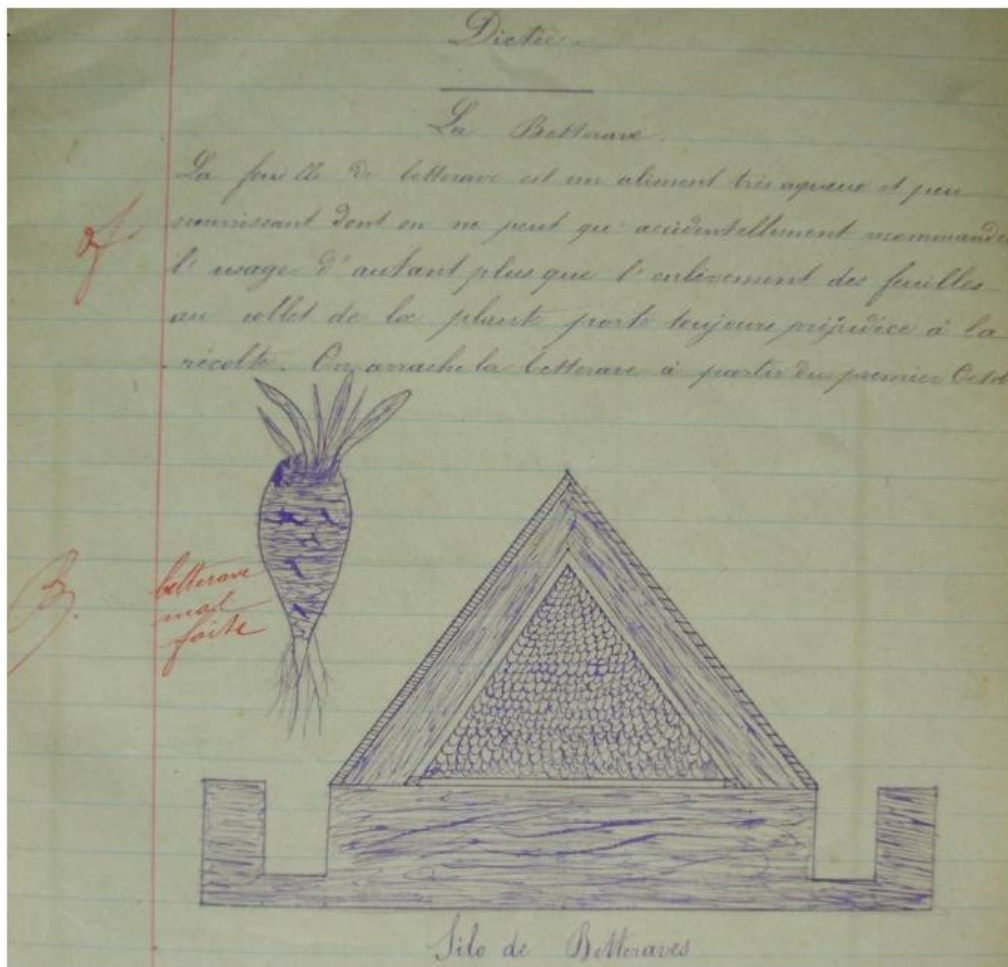 Dictée.
La Betterave.
La feuille de betterave est un aliment très aqueux et peu
nourrissant dont on ne peut qu'accidentellement recommander
l'usage d'autant plus que l'enlèvement des feuilles
au collet de la plante porte toujours préjudice à la
récolte. On arrache la betterave à partir du premier Octob
betterave
mal
faite
B.
Silo de Betteraves